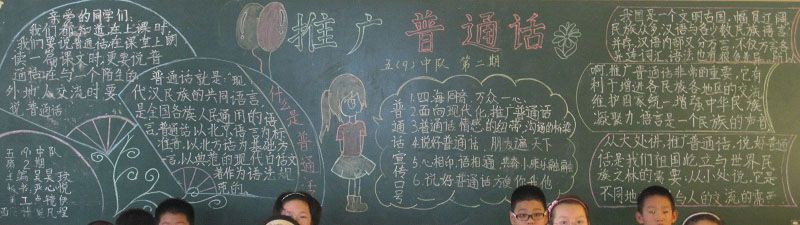 亲爱的同学们：
我们都知道在上课时，
我们要说普通话在课堂上朗
读一篇课文更要说普
通话在与一个陌生的
外地人交流时要
说普通话
普通话就是"现
代汉民族的共同语言，
是全国各族人民通用的语
言。普通话以北京语言为标
准音，以北方话为基础方
言，以典范的现代白话文
著作为语法规
范的。
什么是普通话
推广普通话
五(9)中队 第二期
普通话宣传口号
1.四海同音，万众一心
2.面向现代化，推广普通话
3.普通话情感的纽带，沟通的桥梁
4.说好普通话，朋友遍天下
5.心相印，语相通
6.说好普通话方便你我他
我国是一个文明古国，幅员辽阔
民族众多，汉语与各少数民族语言
并存，汉语内部
啊，推广普通话非常的重要，它有
利于增进各民族各地区的交流
维护国家统一，增强中华民族
凝聚力，语言是一个民族的声音
从大处讲，推广普通话，说好普通
话是我们祖国屹立与世界民
族之林的需要，从小处说，它是
不同地 与人的交流的需要
五(9)中队
第2期